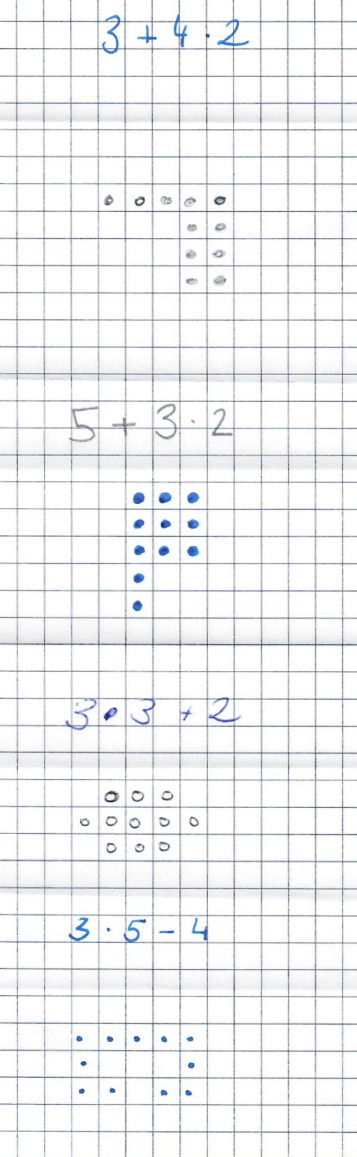 3 + 4 · 2
5 + 3 · 2
3 · 3 + 2
3 · 5 - 4